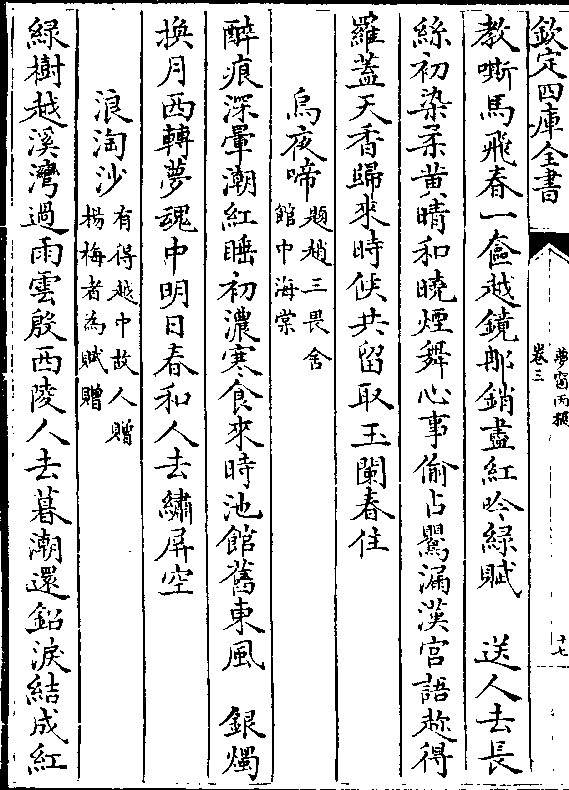 欽定四庫全書
夢窗丙稿
卷三
十七
教嘶馬飛春一奩越鏡那銷盡紅吟綠賦　送人去長
絲初染柔黃晴和曉煙舞心事偷占鶯漏漢宮語趂得
羅蓋天香歸來時候共留取玉闌春住
烏夜啼
題趙三畏舍
館中海棠
醉痕深暈潮紅睡初濃寒食來時池館舊東風　銀燭
換月西轉夢魂中明日春和人去繡屏空
浪淘沙
有得越中故人贈
楊梅者為賦贈
綠樹越溪灣過雨雲殷西陵人去暮潮還鉛淚結成紅